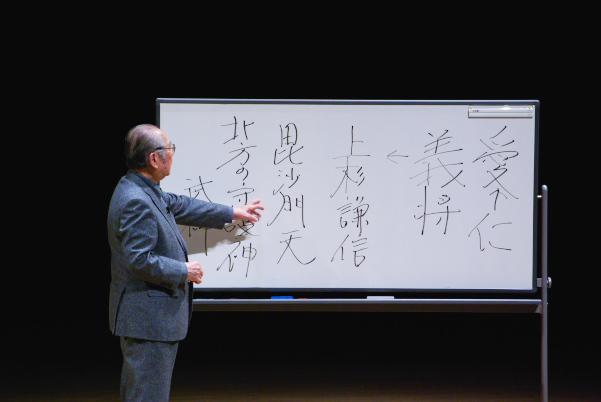 愛↑仁
義将
←
上杉謙信
毘沙門天
北方の守護神
武